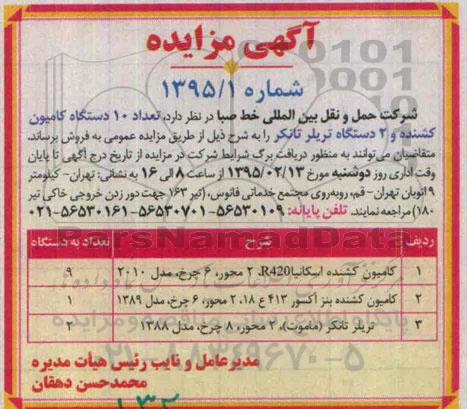 آگهی مزایده
شماره ۱۳۹۵/۱
شرکت حمل و نقل بین المللی خط صبا در نظر دارد، تعداد ۱۰ دستگاه کامیون
کشنده و ۲ دستگاه تریلر تانکر را به شرح ذیل از طریق مزایده عمومی به فروش برساند.
متقاضیان می‌توانند به منظور دریافت برگ شرایط شرکت در مزایده از تاریخ درج آگهی تا پایان
وقت اداری روز دوشنبه مورخ ۱۳۹۵/۰۲/۱۳ از ساعت ۸ الی ۱۶ به نشانی: تهران- کیلومتر
۹ اتوبان تهران- قم، روبه‌روی مجتمع خدماتی فانوس، (تیر ۱۶۳ جهت دور زدن خروجی خاکی تیر
۱۸۰) مراجعه نمایند. تلفن پایانه: ۵۶۵۳۰۱۰۹-۵۶۵۳۰۷۰۱-۵۶۵۳۰۱۶۱-۰۲۱
ردیف شرح تعداد به دستگاه
۱ کامیون کشنده اسکانیا R420، ۲ محور، ۶ چرخ، مدل ۲۰۱۰ ۹
۲ کامیون کشنده بنز آکسور ۴۱۳ ع ۱۸، ۲ محور، ۶ چرخ، مدل ۱۳۸۹ ۱
۳ تریلر تانکر (ماموت)، ۲ محور، ۸ چرخ، مدل ۱۳۸۸ ۲
مدیرعامل و نایب رئیس هیأت مدیره
محمدحسن دهقان
ParsNamadData
۰۲۱-۸۸۳۴۹۶۷۰-۵